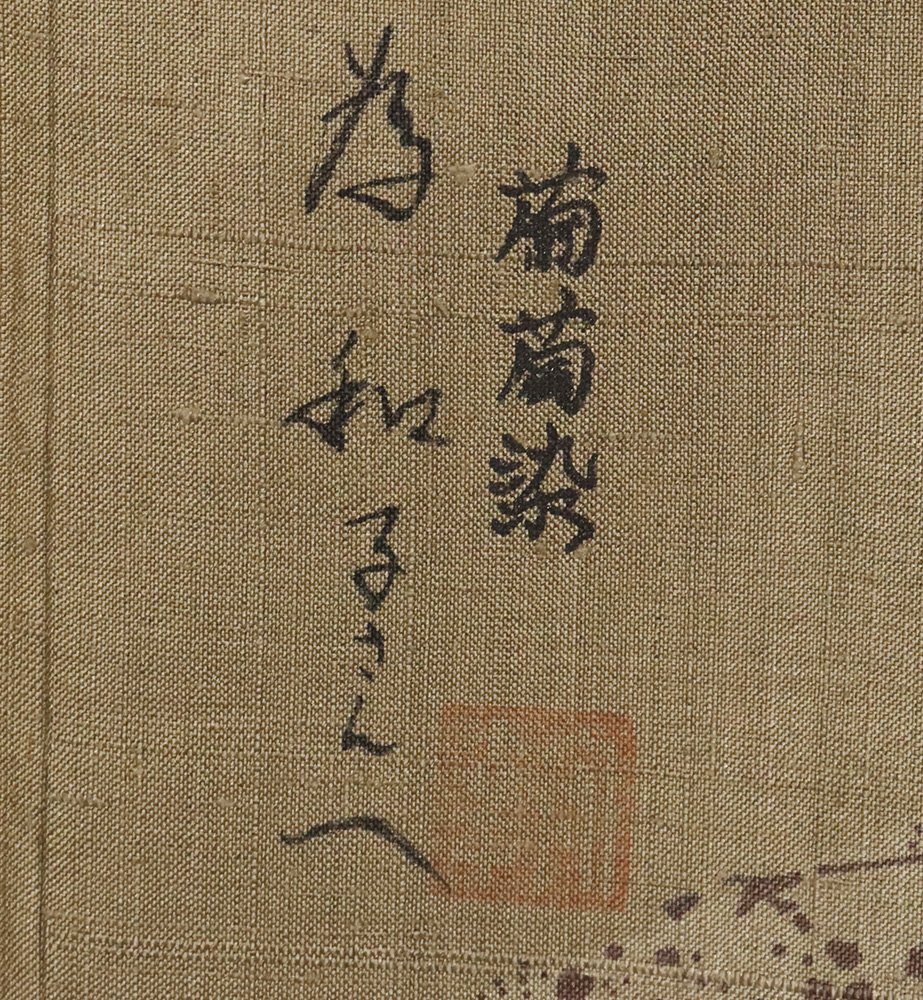 葡萄染
為和子さんへ